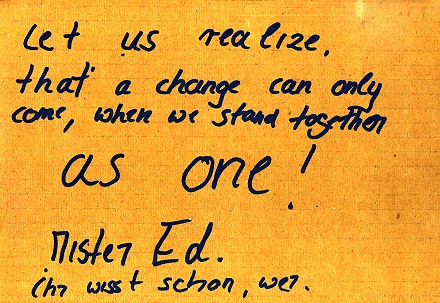 Let us realize,
that a change can only
come, when we stand together
as one!
Mister Ed.
ihr wisst schon, wer.